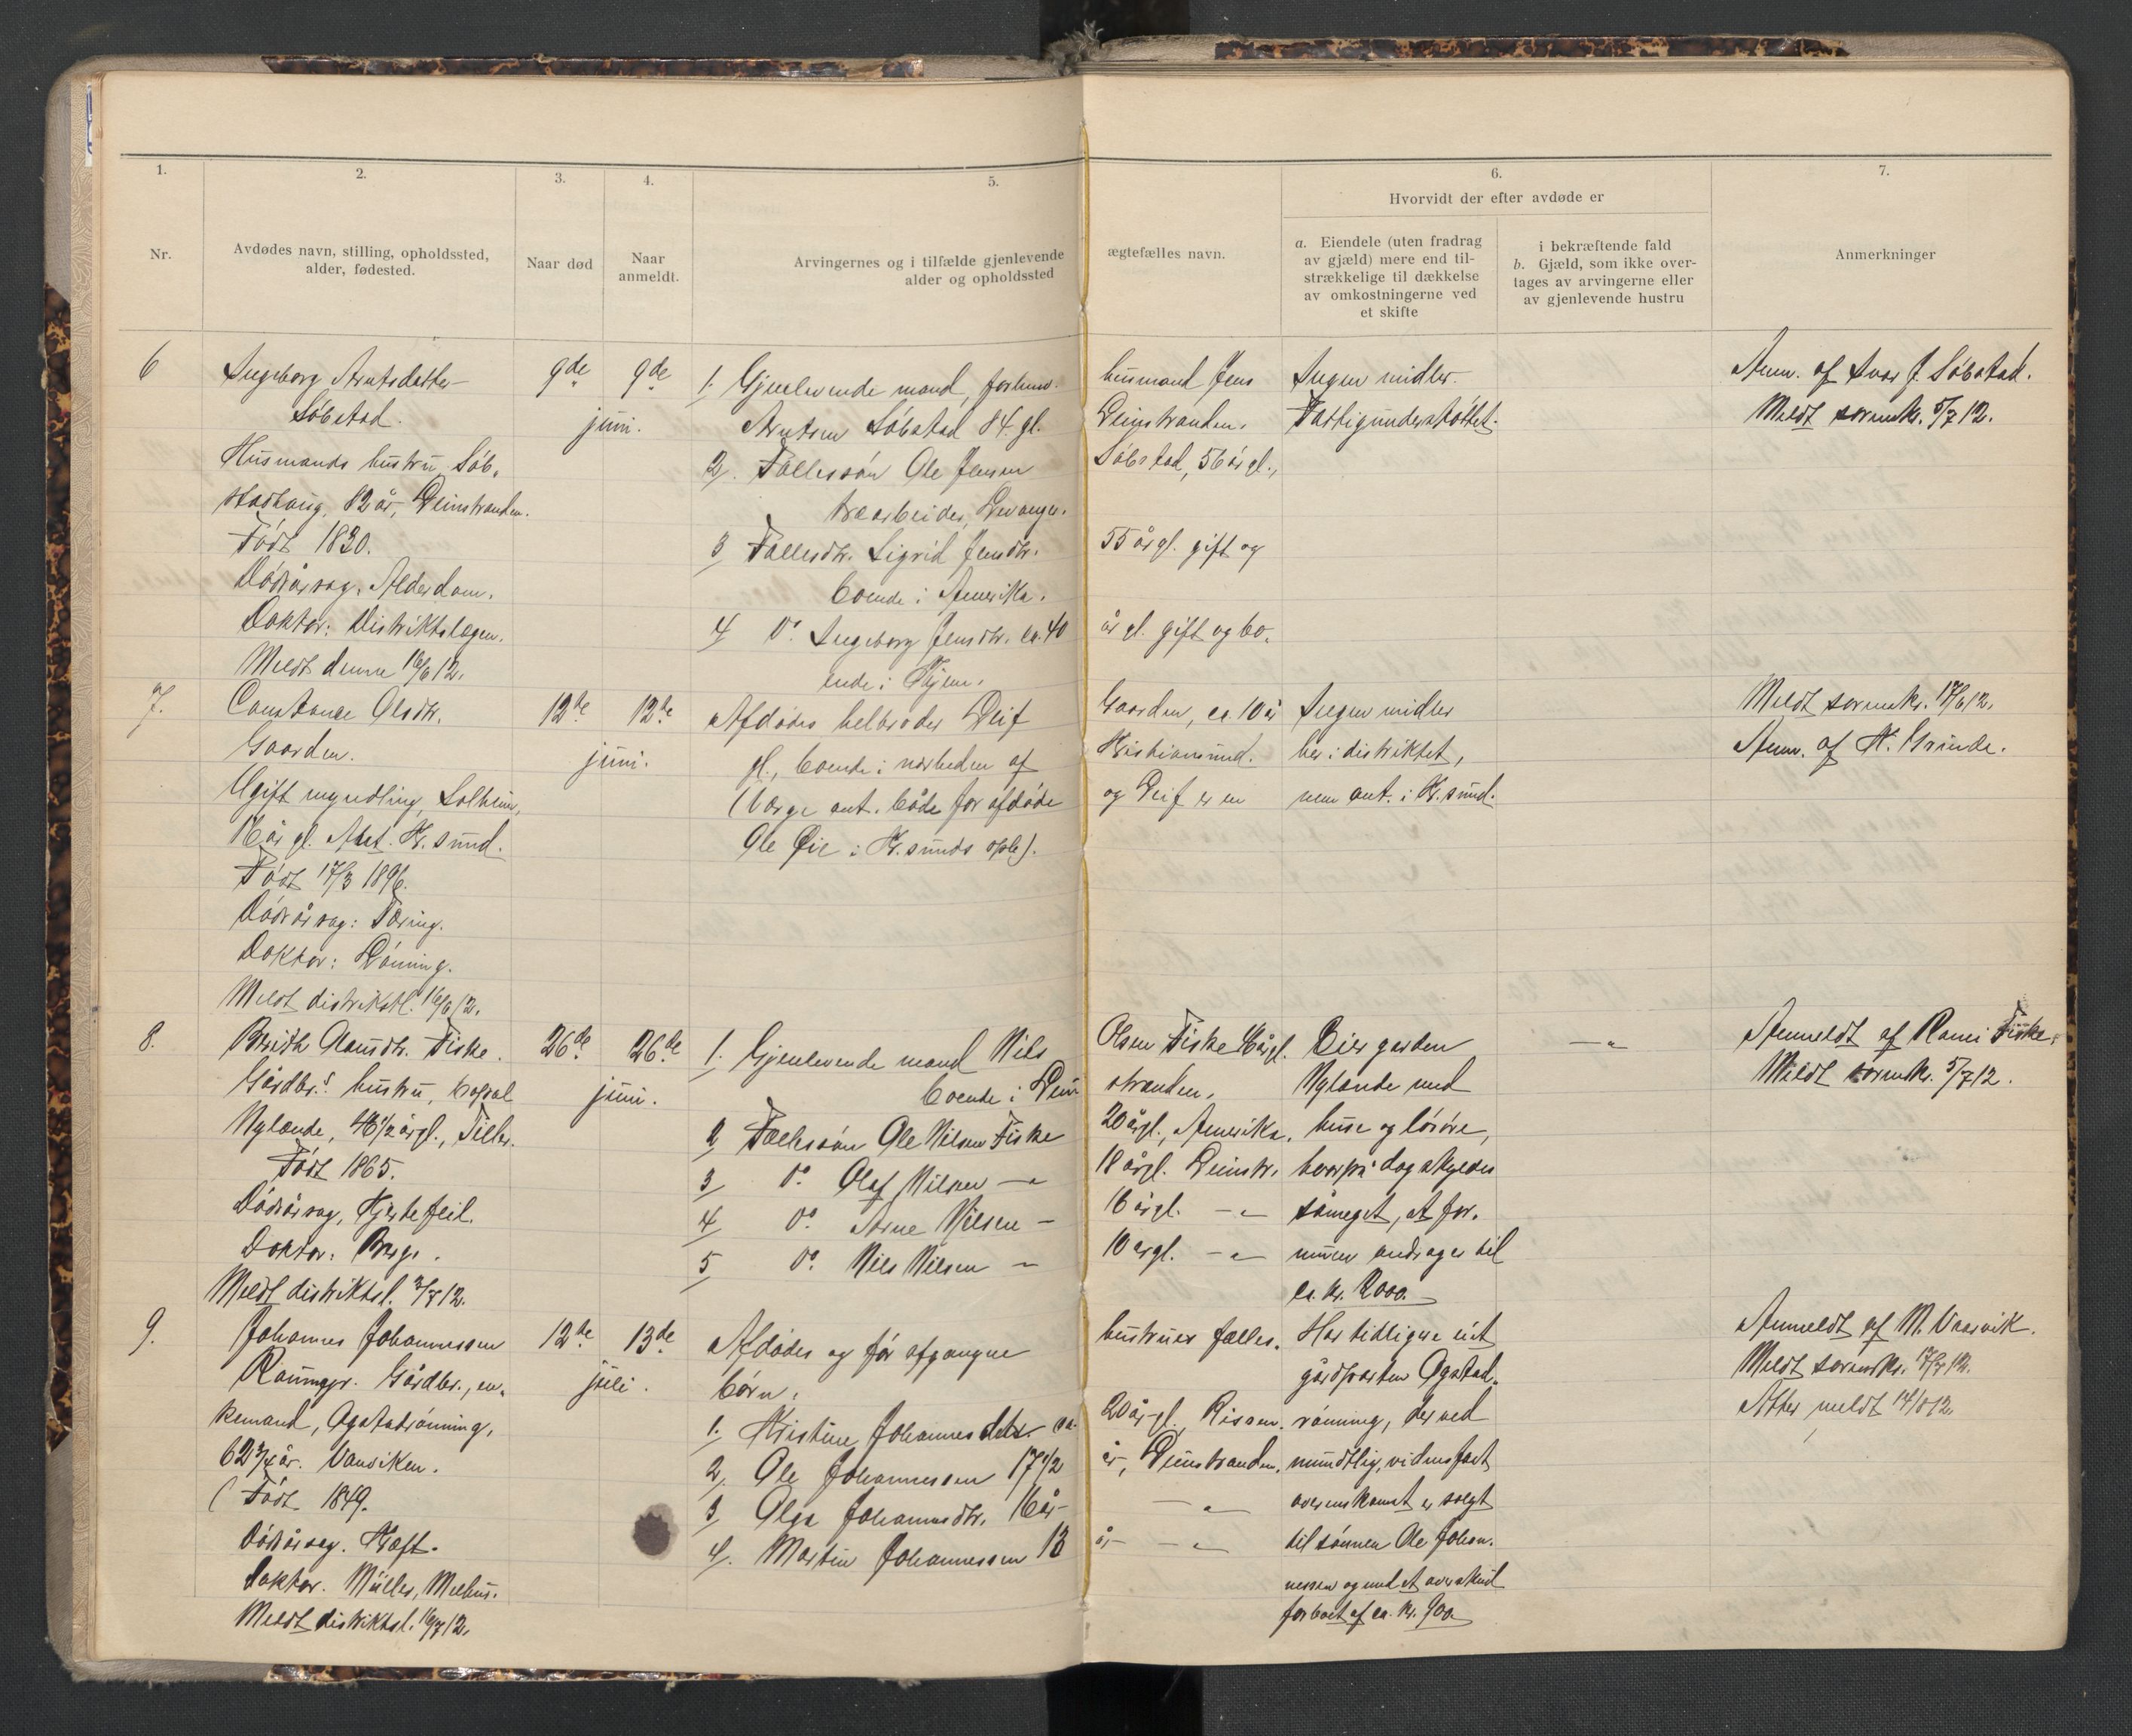 1.
2.
3.
4.
5.
6.
7.
Nr.
Avdødes navn, stilling, opholdssted,
alder, fødested.
Naar død
Naar
anmeldt.
Arvingernes og i tilfælde gjenlevende
alder og opholdssted
ægtefælles navn.
Hvorvidt der efter avdøde er
a. Eiendele (uten fradrag
av gjæld) mere end til-
strækkelige til dækkelse
av omkostningerne ved
et skifte
i bekræftende fald
b. Gjæld, som ikke over-
tages av arvingerne eller
av gjenlevende hustru
Anmerkninger
6
Ingeborg Arntsdatter
Søbstad.
Husmands hustru, Søb-
stadhaug, 82 år, Leinstranden.
Født 1830.
Dødsårsag, Alderdom.
Doktor: Distriktslægen.
Meldt denne 16/6 12.
9de
9de
juni.
1. Gjenlevende mand, forhenv. husmand Jens
Arntsen Søbstad 84 gl. Leinstranden.
2. Fællessøn Ole Jensen Søbstad, 56 år gl.,
træarbeider, Levanger.
3 Fællesdtr. Sigrid Jensdtr. 55 år gl. gift og
boende i Amerika.
4 Do. Ingeborg Jensdtr. ca. 40 år gl. gift og bo-
ende i Tyen.
Ingen midler.
Fattigunderstøttet.
Anm. af Ivar J. Søbstad.
Meldt sorenskr. 5/7 12.
7.
Constance Olsdtr.
Gaarden.
Ugift myndling, Solheim,
16 år gl. Ant. Kr.sund.
Født 17/3 1896.
Dødsårsag: Tæring.
Doktor:
Meldt distriktsl. 16/6 12.
12te
12te
juni.
Afdødes helbroder Leif Gaarden, ca. 10 år
gl., boende i nærheden af Kristiansund.
(Værge ant. både for afdøde og Leif er en
Ole Øie i Kr.sunds opld).
Ingen midler
her i distriktet,
men ant. i Kr.sund.
Meldt sorenskr. 17/6 12.
Anm. af A. Grinde.
8.
Berith Olausdtr. Fiske.
Gårdbr.s hustru,
Nylænde, 46 1/2 år gl., Tiller.
Født 1865.
Dødsårsag, Hjertefeil.
Doktor: Berge.
Meldt distriktsl. 3/7 12.
26de
26de
juni.
1. Gjenlevende mand Nils Olsen Fiske 48 år gl.
boende i Leinstranden.
2 Fællessøn Ole Nilsen Fiske 20 år gl., Amerika.
3 Do. Olaf Nilsen — " 18 år gl. Leinstr.
4 Do. Arne Nilsen — 16 år gl. — " —
5 Do. Nils Nilsen — 10 år gl. — " —
Eier garden
Nylænde med
huse og løsøre,
hvorpå dog skyldes
såmeget, at for-
muen andrager til
ca. kr. 2000.
— " —
Anmeldt af Fiske.
Meldt sorenskr. 5/7 12.
9.
Johannes Johannessen
Gårdbr., en-
kemand, Ogstadrønning,
62 3/4 år. Vanviken.
(Født 1849.
Dødsårsag. Kræft.
Doktor. Müller, Melhus.
Meldt distriktsl. 16/7 12.
12te
13de
juli.
Afdødes og før afgangne hustrues fælles-
børn.
1. Kristine Johannesdtr. ca. 20 år gl., Rissen.
2. Ole Johannessen 17 1/2 år, Leinstranden.
3 Olga Johannesdtr. 16 år — " —
4. Martin Johannessen 13 år — " —
Har tidligere eiet
gårdparten Ogstad-
rønning, der ved
mundtlig, vidnesfast
overenskomst er solgt
til sønnen Ole Johan-
nessen og med et overskud
for boet af ca. kr. 900.
Anmeldt af M. Vaarvik.
Meldt sorenskr. 17/7 12.
Atter meldt